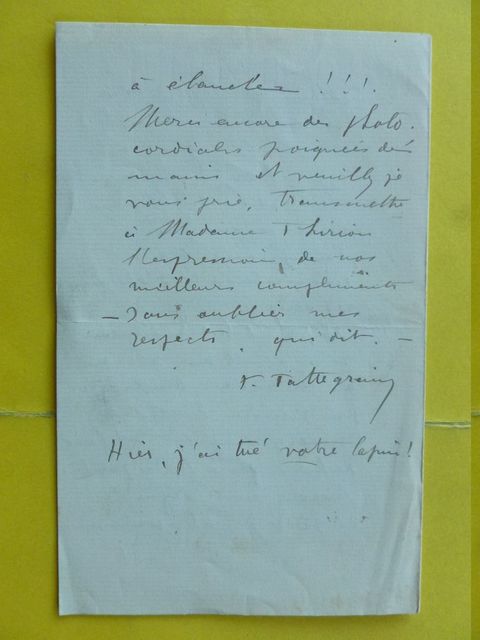 à étancher !!!
Merci encore des photo.
cordiales poignées de
mains et veuillez je
vous prie, transmettre
à Madame Thirion
l'expression de nos
meilleurs compliments
— Sans oublier mes
respects. qu'il dit. —
F. Tattegrain
Hier, j'ai tué votre lapin!